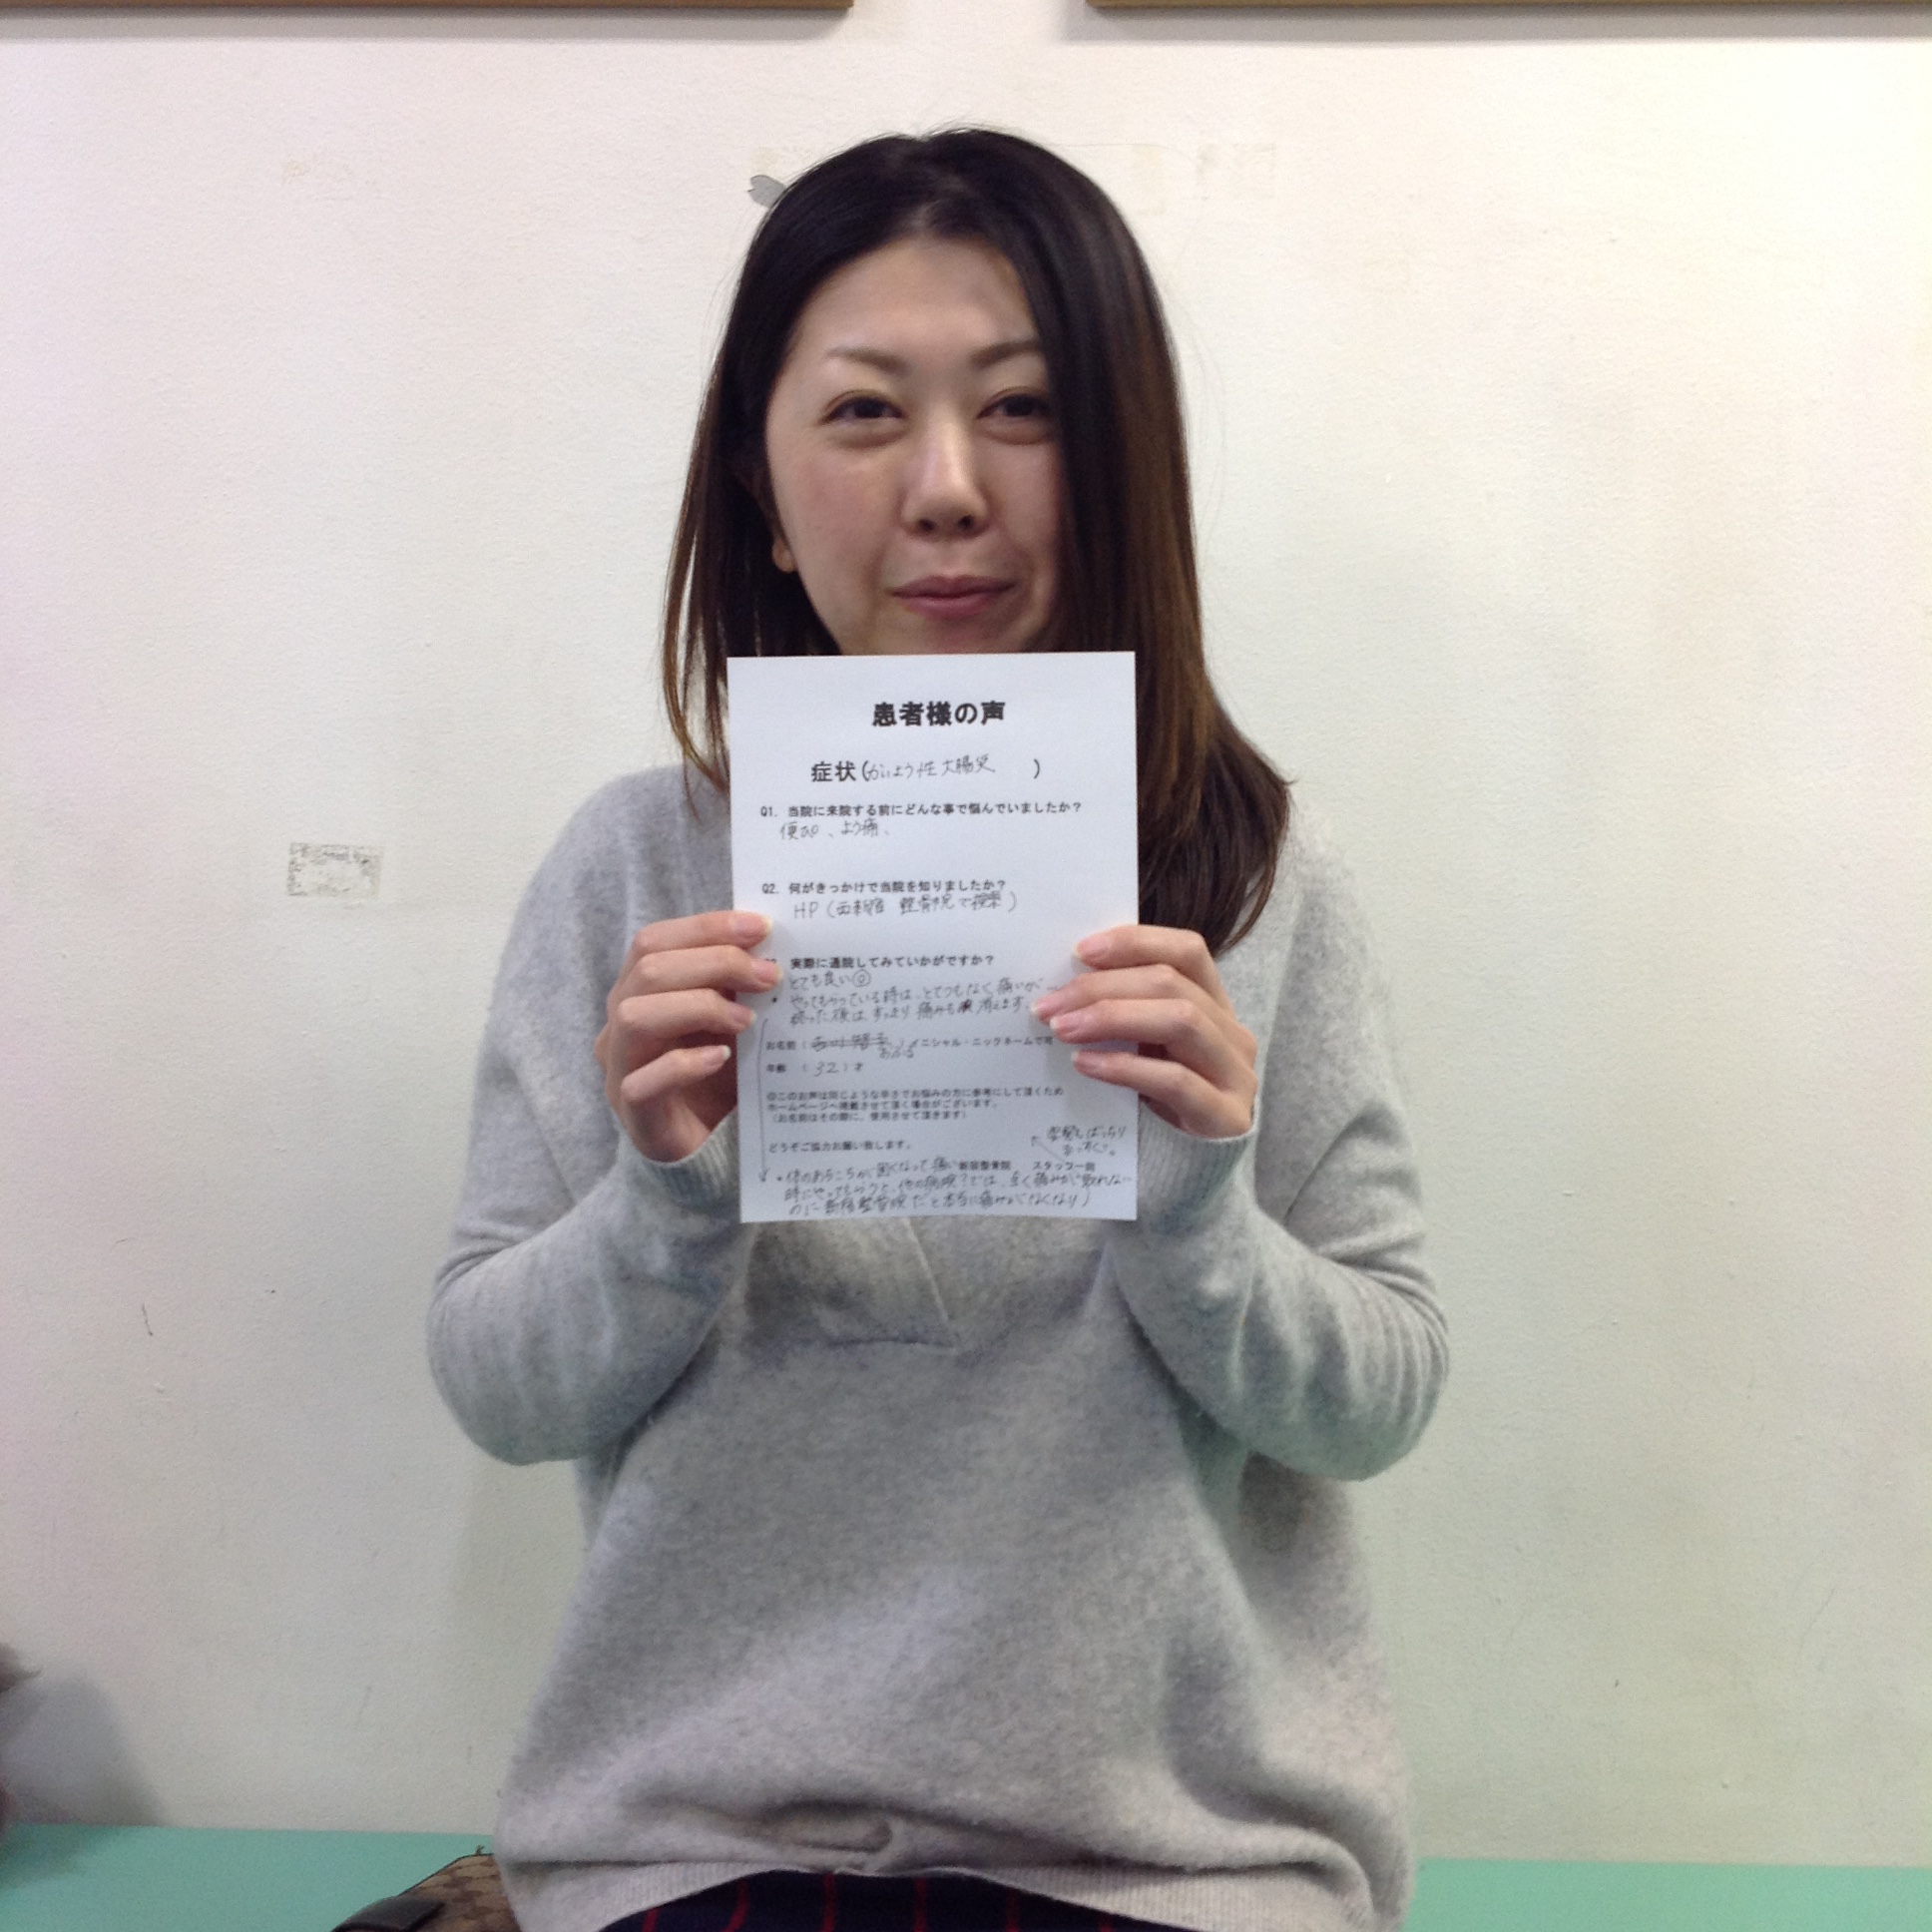 患者様の声
症状(かいよう性大腸炎)
Q1. 当院に来院する前にどんな事で悩んでいましたか?
便ぴ、よう痛、
Q2. 何がきっかけで当院を知りましたか?
HP(西新宿 整骨院で検索)
実際に通院してみていかがですか?
とても良い◎
・やってもらっている時は、とてつもなく痛いが…
終った後は、すっきり痛みも消えます。
お名前( )イニシャル・ニックネームで可
年齢 (32)才
◎このお声は同じような辛さでお悩みの方に参考にして頂くため
ホームページへ掲載させて頂く場合がございます。
(お名前はその際に、使用させて頂きます)
どうぞご協力お願い致します。
新宿整骨院 スタッフ一同
・体のあちこちが固くなって痛い
時にやってもらうと、他の病院?では、全く痛みが取れない
のに新宿整骨院だと本当に痛みがなくなり